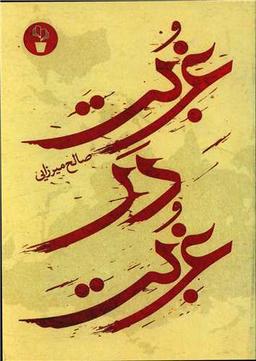 غُربت
در
غُربت
صالح میرزایی